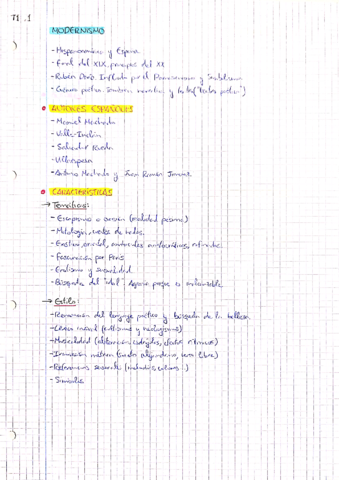 T1.1
MODERNISMO
- Hispanoamérica y España
- Final del XIX, principios del XX
- Rubén Darío. Influido por el Parnasianismo y Simbolismo
- Género poético. También narrativa y teatro ("teatro poético")
AUTORES ESPAÑOLES
- Manuel Machado
- Valle-Inclán
- Salvador Rueda
- Villaespesa
- Antonio Machado y Juan Ramón Jiménez
CARACTERÍSTICAS
→ Temáticas:
- Escapismo o evasión (realidad
- Mitología, cuentos de hadas
- Exotismo oriental,
- Fascinación por París
- Erotismo y sensualidad
- Búsqueda del "ideal".
→ Estilo:
- Renovación del lenguaje poético y búsqueda de la belleza
- Léxico musical (cultismos y neologismos)
- Musicalidad (aliteración,
- Innovación métrica (verso alejandrino, verso libre)
- Referencias sensoriales
- Símbolos